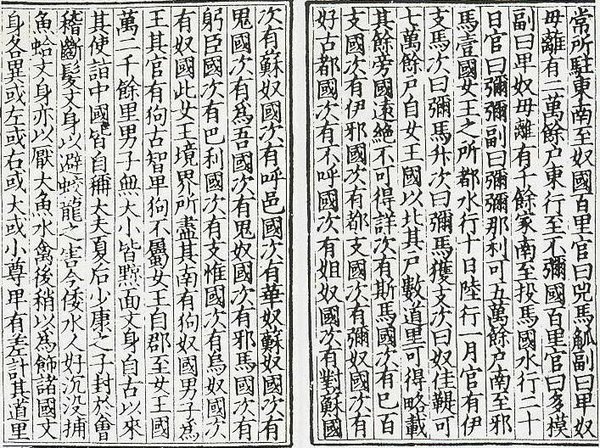 常所駐東南至奴國百里官曰兕馬觚副曰卑奴
毋離有二萬餘戶東行至不彌國百里官曰多模
副曰卑奴毋離有千餘家南至投馬國水行二十
日官曰彌彌副曰彌彌那利可五萬餘戶南至邪
馬壹國女王之所都水行十日陸行一月官有伊
支馬次曰彌馬升次曰彌馬獲支次曰奴佳鞮可
七萬餘戶自女王國以北其戶數道里可得略載
其餘旁國遠絕不可得詳次有斯馬國次有已百
支國次有伊邪國次有都支國次有彌奴國次有
好古都國次有不呼國次有姐奴國次有對蘇國
次有蘇奴國次有呼邑國次有華奴蘇奴國次有
鬼國次有為吾國次有鬼奴國次有邪馬國次有
躬臣國次有巴利國次有支惟國次有烏奴國次
有奴國此女王境界所盡其南有狗奴國男子為
王其官有狗古智卑狗不屬女王自郡至女王國
萬二千餘里男子無大小皆黥面文身自古以來
其使詣中國皆自稱大夫夏后少康之子封於會
稽斷髮文身以避蛟龍之害今倭水人好沉没捕
魚蛤文身亦以厭大魚水禽後稍以為飾諸國文
身各異或左或右或大或小尊卑有差計其道里